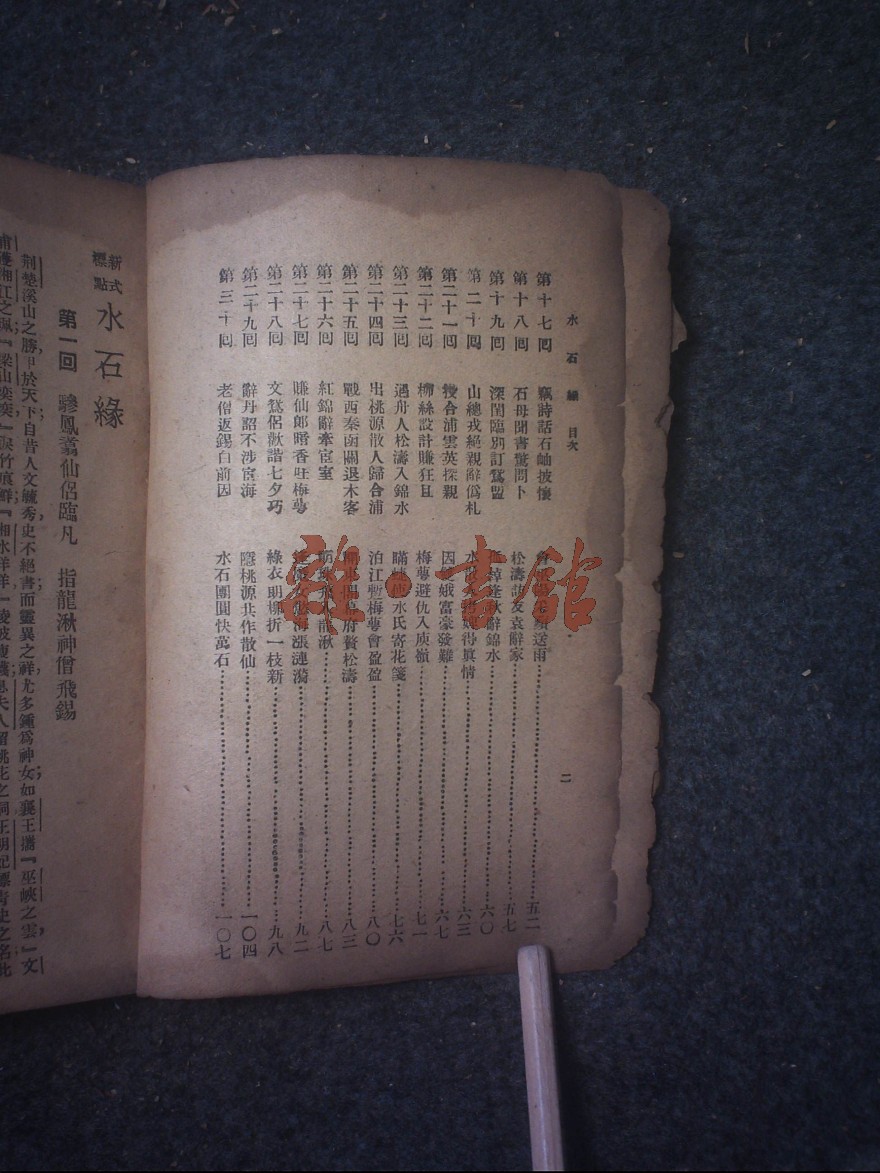 水石緣 目次 二
第十七回 飄詩話石岫披懷 送雨 五二
第十八回 石母聞書驚問卜 松濤話友袁辭家 五七
第十九回 深閨臨別訂鴛盟 逢秋辭錦水 六〇
第二十回 山總戎絕親辭偽札 水 得眞情 六三
第二十一回 合浦雲英探親 因 娥富豪發難 六七
第二十二回 柳絲設計賺狂且 梅萼避仇入庾嶺 七一
第二十三回 遇舟人松濤入錦水 瞞 使水氏寄花箋 七六
第二十四回 出桃源散人歸合浦 泊江暫梅萼會盈盈 八〇
第二十五回 戰西秦函關退木客 開幕府贅松濤 八三
第二十六回 紅錦辭牽宦室 明珠 入龍湫 八七
第二十七回 賺仙郎暗香誑梅萼 海漲漣漪 九二
第二十八回 文鴛侶歡諧七夕巧 綠衣明柳折一枝新 九八
第二十九回 辭丹詔不涉宦海 隱桃源共作散仙 一〇四
第三十回 老僧返錫白前因 水石團圓快萬石 一〇七
新式標點 水石緣
第一回 驂鳳翥仙侶臨凡 指龍湫神僧飛錫
荆楚溪山之勝甲於天下自昔人文毓秀史不絕書而靈異之祥尤多鍾爲神女如襄王瀟『巫峽之雲』文
雜·書館